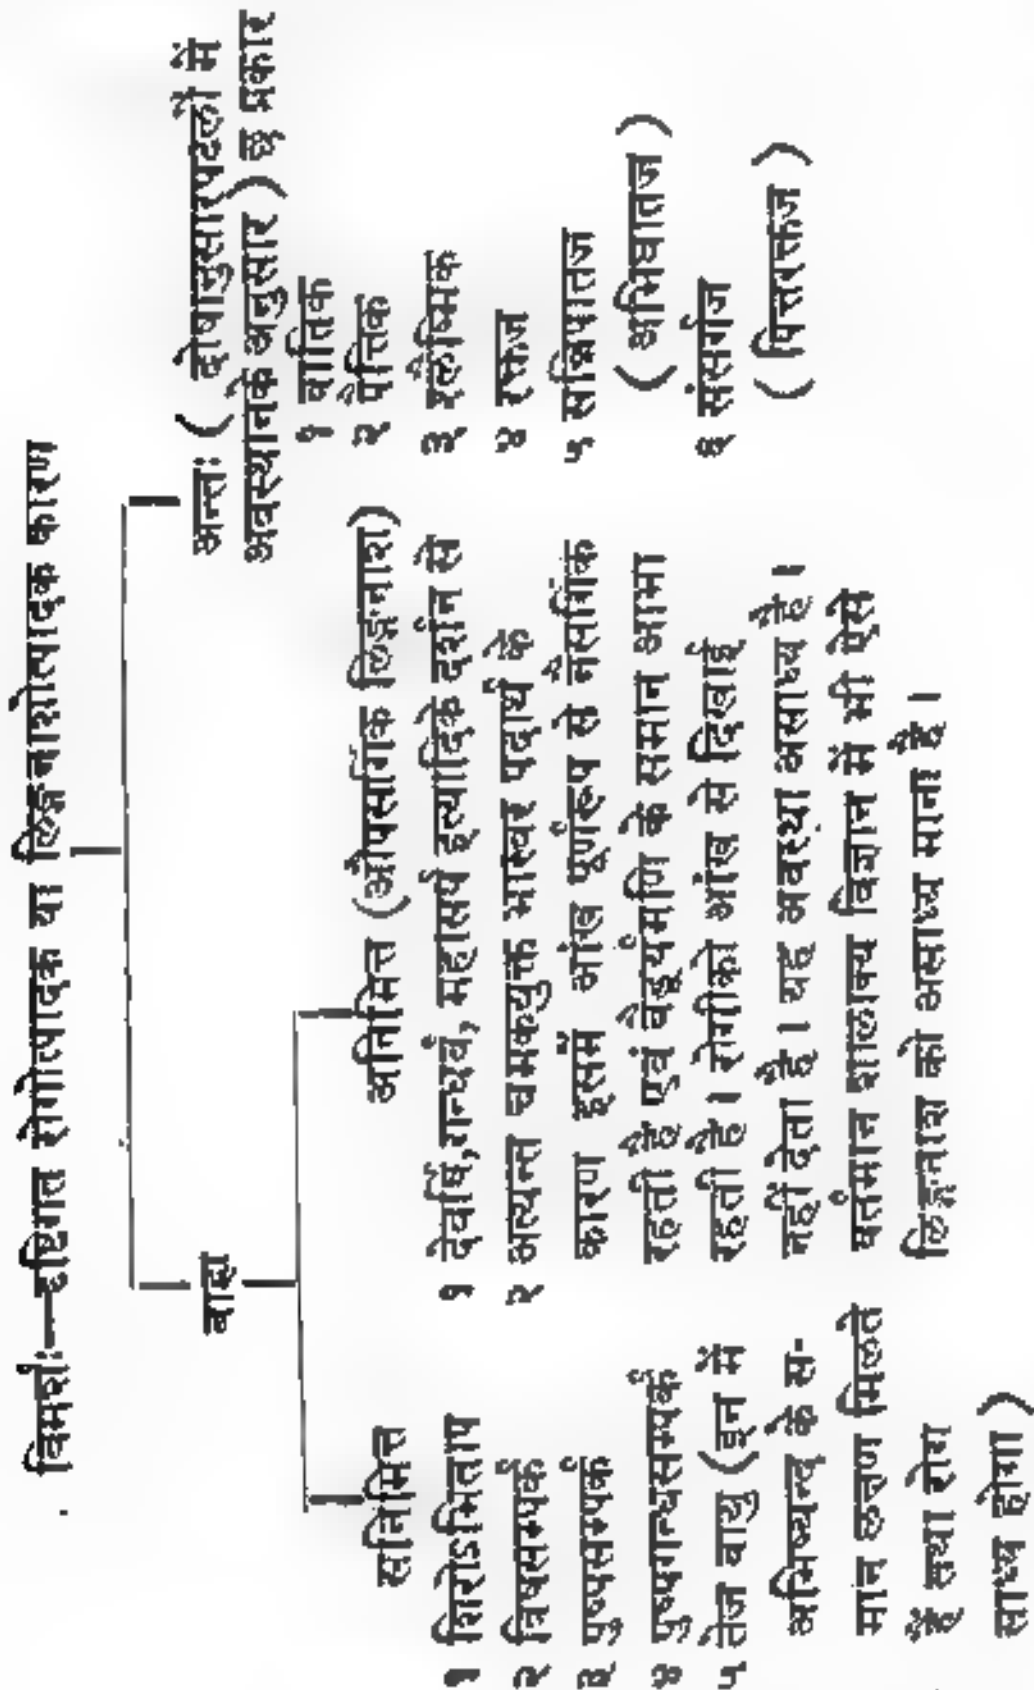 विमर्शः—दृष्टिगत रोगोत्पादक या लिङ्गनाशोत्पादक कारण
बाह्य
सनिमित्त
१ शिरोऽभिताप
२ विषसम्पर्क
३ पुष्पसम्पर्क
४ पुष्पगन्धसम्पर्क
५ तेज वायु (इन में
अभिष्यन्द के स-
मान लक्षण मिलते
हैं तथा रोग
साध्य होगा )
अनिमित्त (औपसर्गिक लिङ्गनाश)
१ देवर्षि,गन्धर्व, महासर्प इत्यादिके दर्शन से
२ अत्यन्त चमकयुक्त भास्वर पदार्थ के
कारण इसमें आंख पूर्णरूप से नैसर्गिक
रहती है एवं वैडूर्यमणि के समान आभा
रहती है। रोगीको आंख से दिखाई
नहीं देता है । यह अवस्था असाध्य है ।
वर्तमान शालाक्य विज्ञान में भी ऐसे
लिङ्गनाश को असाध्य माना है ।
अन्तः ( दोषानुसारपटलों में
अवस्थानके अनुसार ) छ प्रकार
१ वातिक
२ पैत्तिक
३ श्लैष्मिक
४ रक्तज
५ सन्निपातज
( अभिघातज )
६ संसर्गज
( पित्तरक्तज )